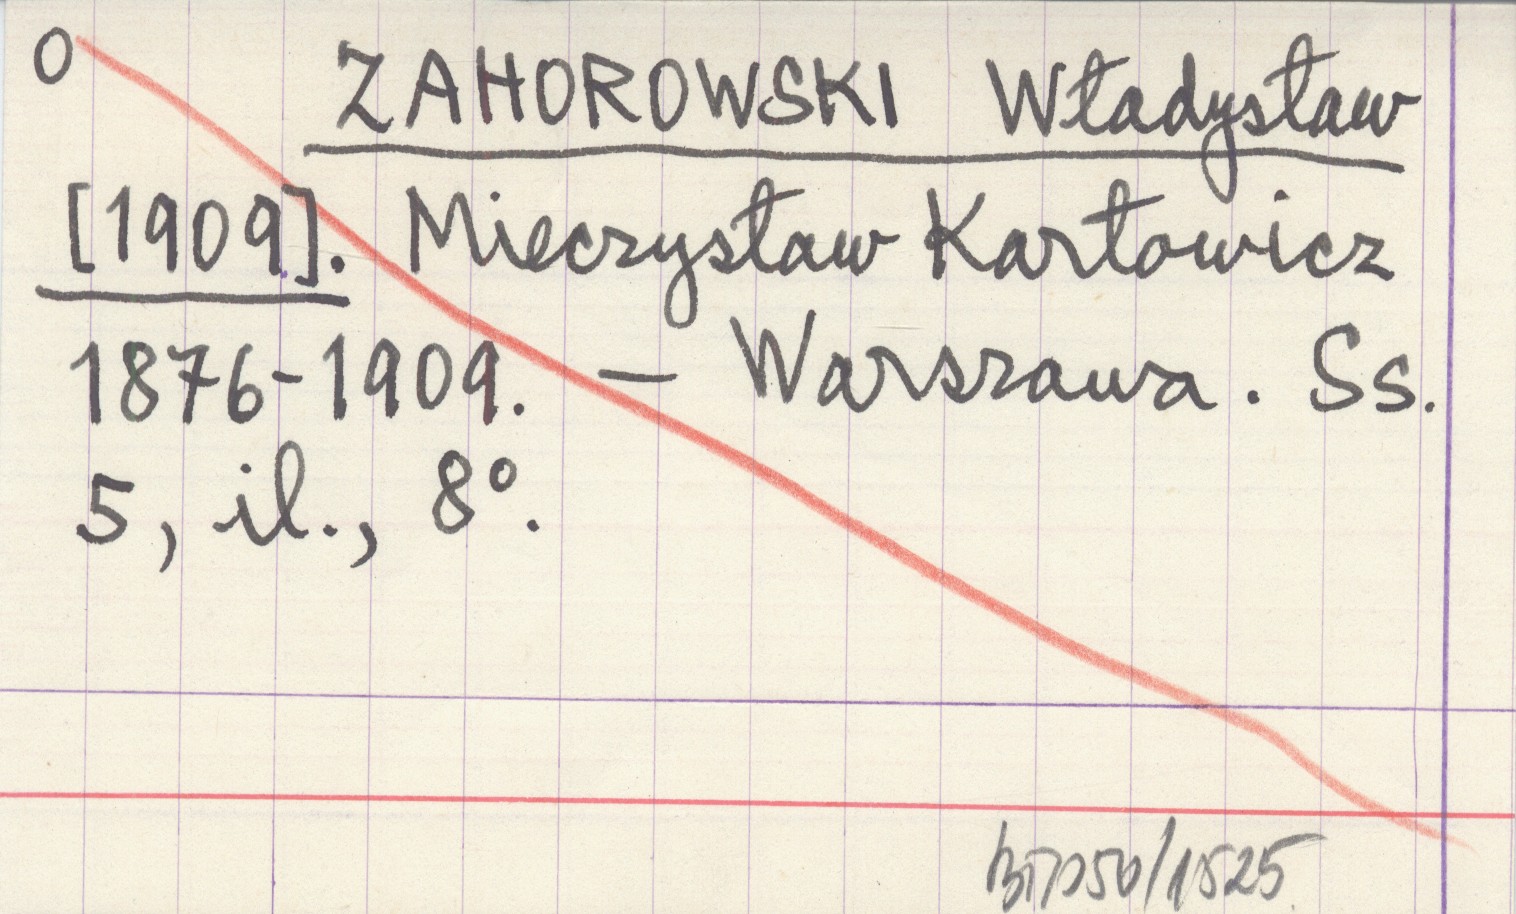 O ZAHOROWSKI Władysław
[1909]. Mieczysław Karłowicz
1876-1909. — Warszawa. Ss.
5, il., 8°.